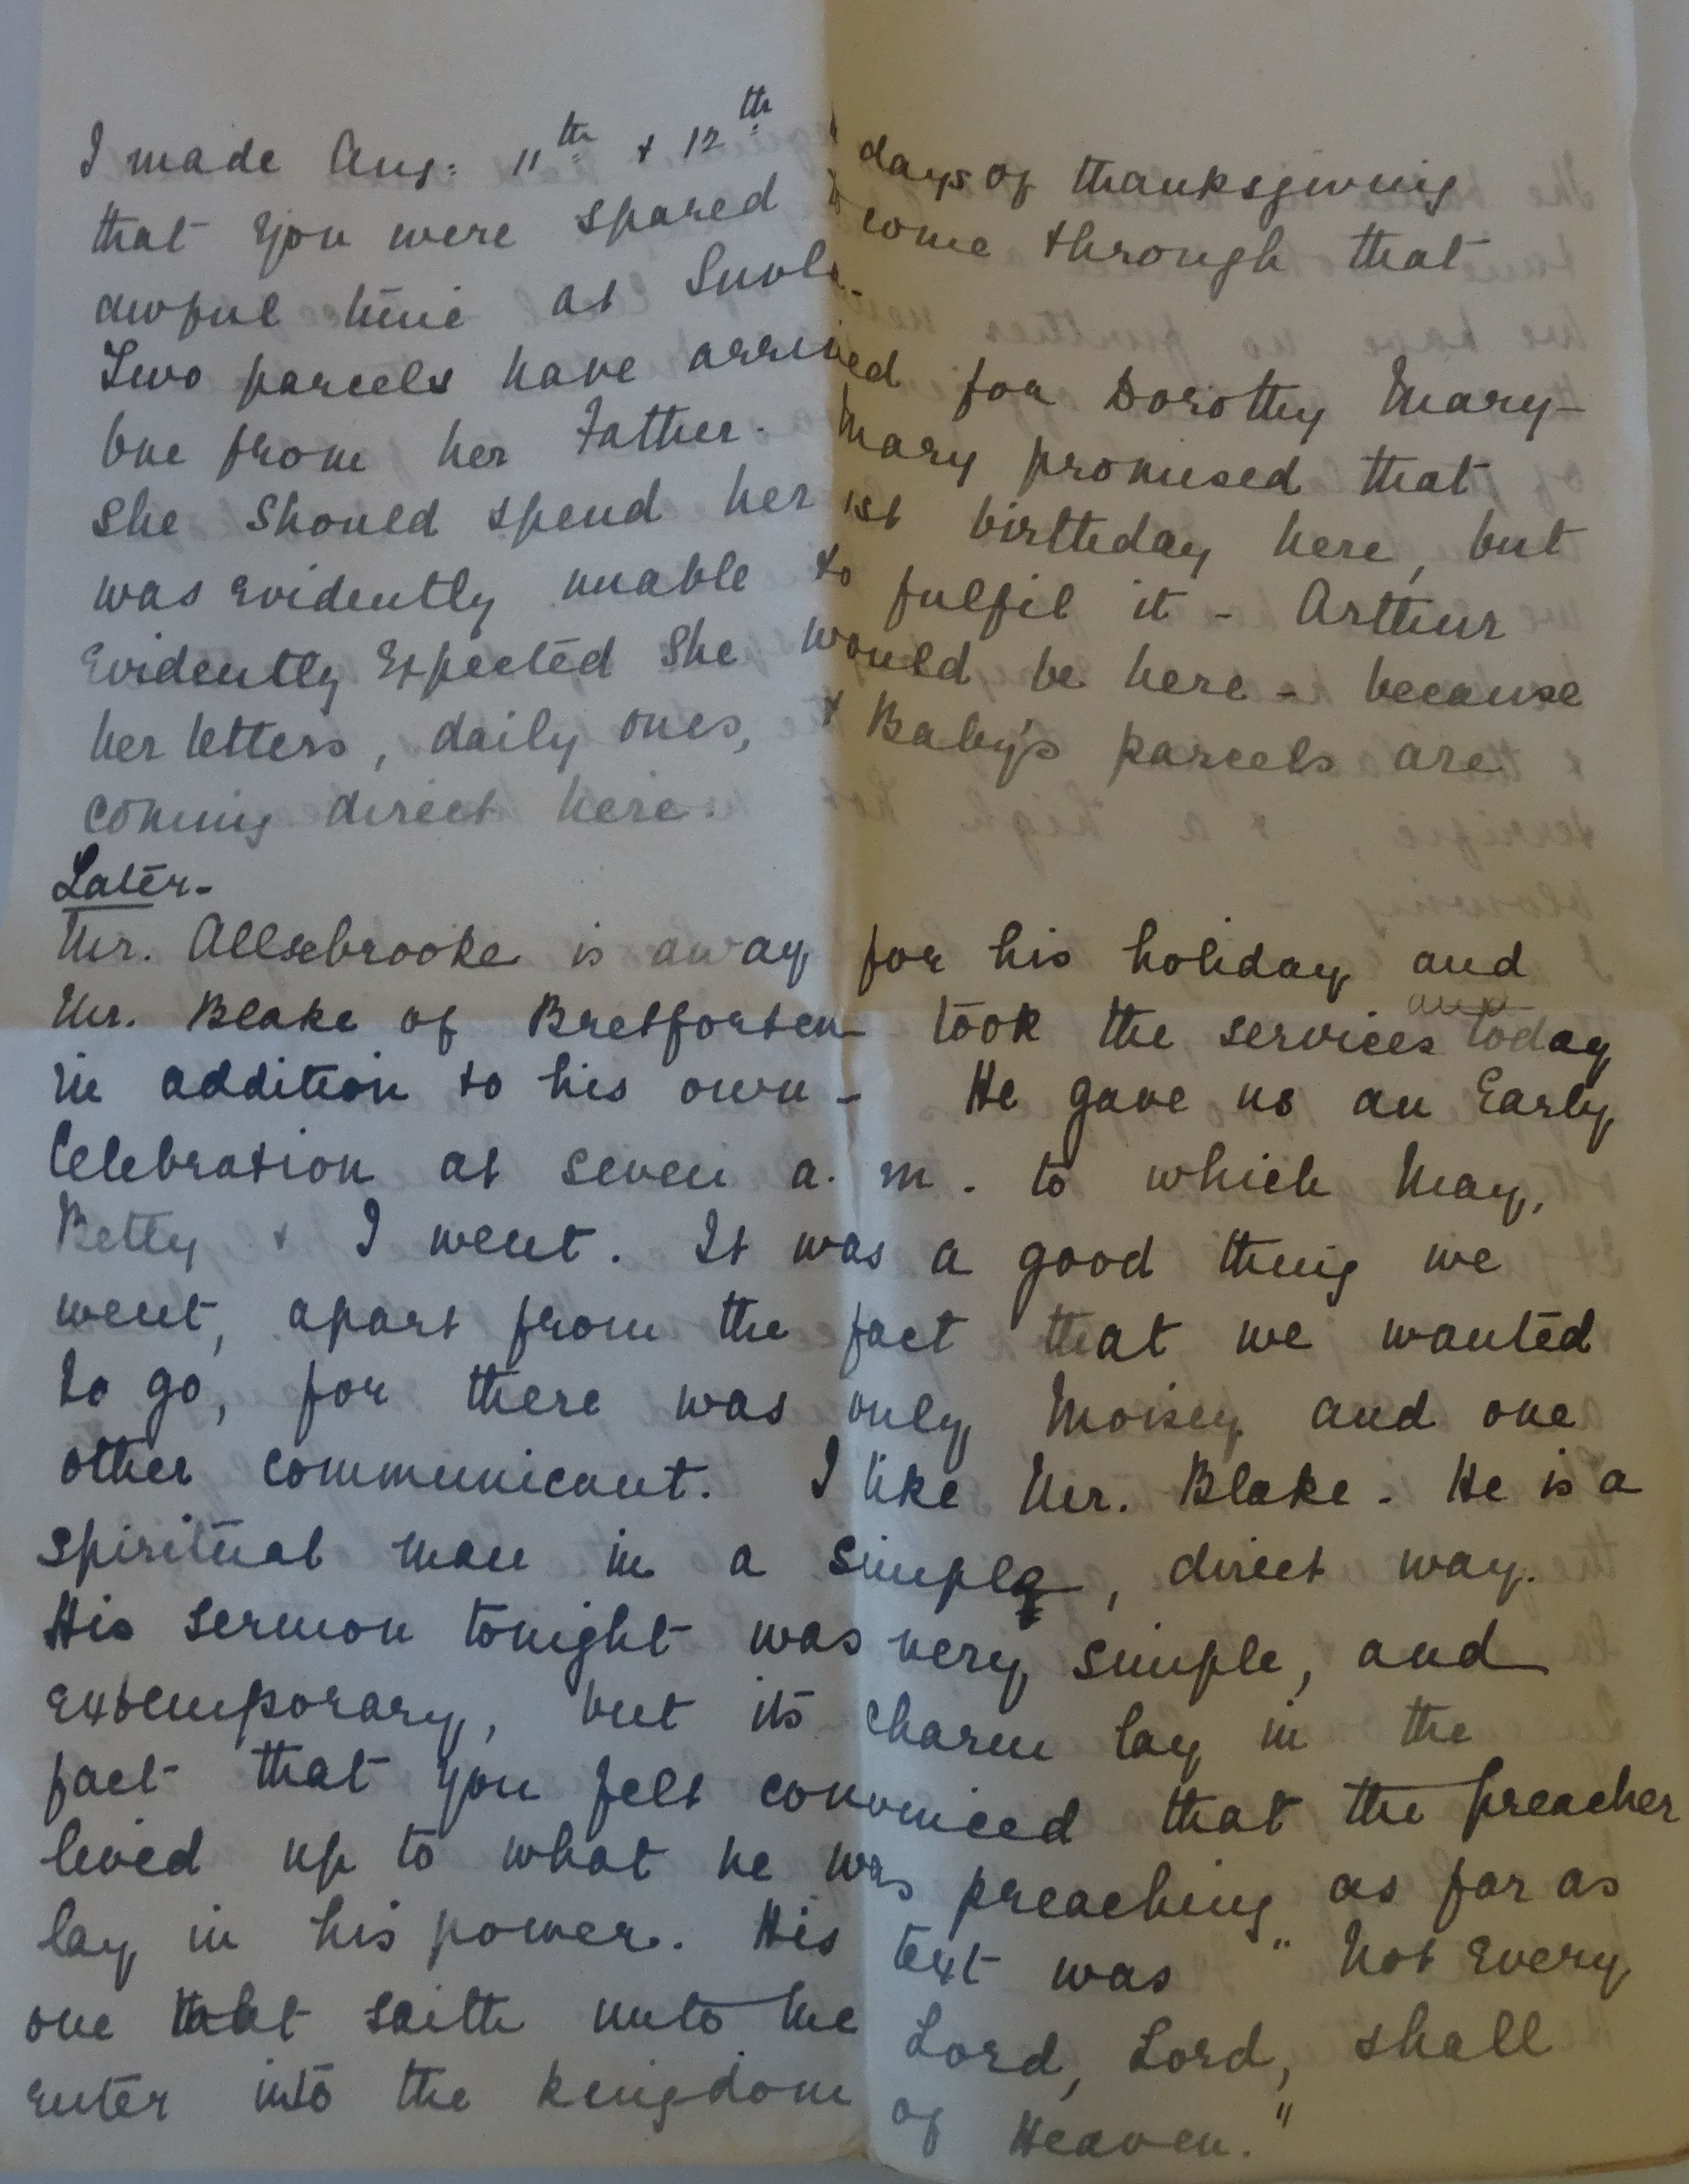 I made Aug: 11th & 12th days of thanksgiving
that you were spared to come through that
awful time at Suvla.
Two parcels have arrived for Dorothy Mary –
One from her Father. Mary promised that
she should spend her 1st birthday here, but
was evidently unable to fulfil it – Arthur
evidently expected she would be here – because
her letters, daily ones, & Baby's parcels are
coming direct here.
Later –
Mr. Allsebrooke is away for his holiday and
Mr. Blake of Bretforten took the services today
in addition to his own – He gave us an Early
Celebration at seven a. m. to which May,
Betty & I went. It was a good thing we
went, apart from the fact that we wanted
to go, for there was only Moisey and one
other communicant. I like Mr. Blake – He is a
spiritual man in a simple, direct way.
His sermon tonight was very simple, and
extemporary, but its charm lay in the
fact that you felt convinced that the preacher
lived up to what he was preaching as far as
lay in his power. His text was "Not every
one that saith unto me Lord, Lord, shall
enter into the kingdom of Heaven."